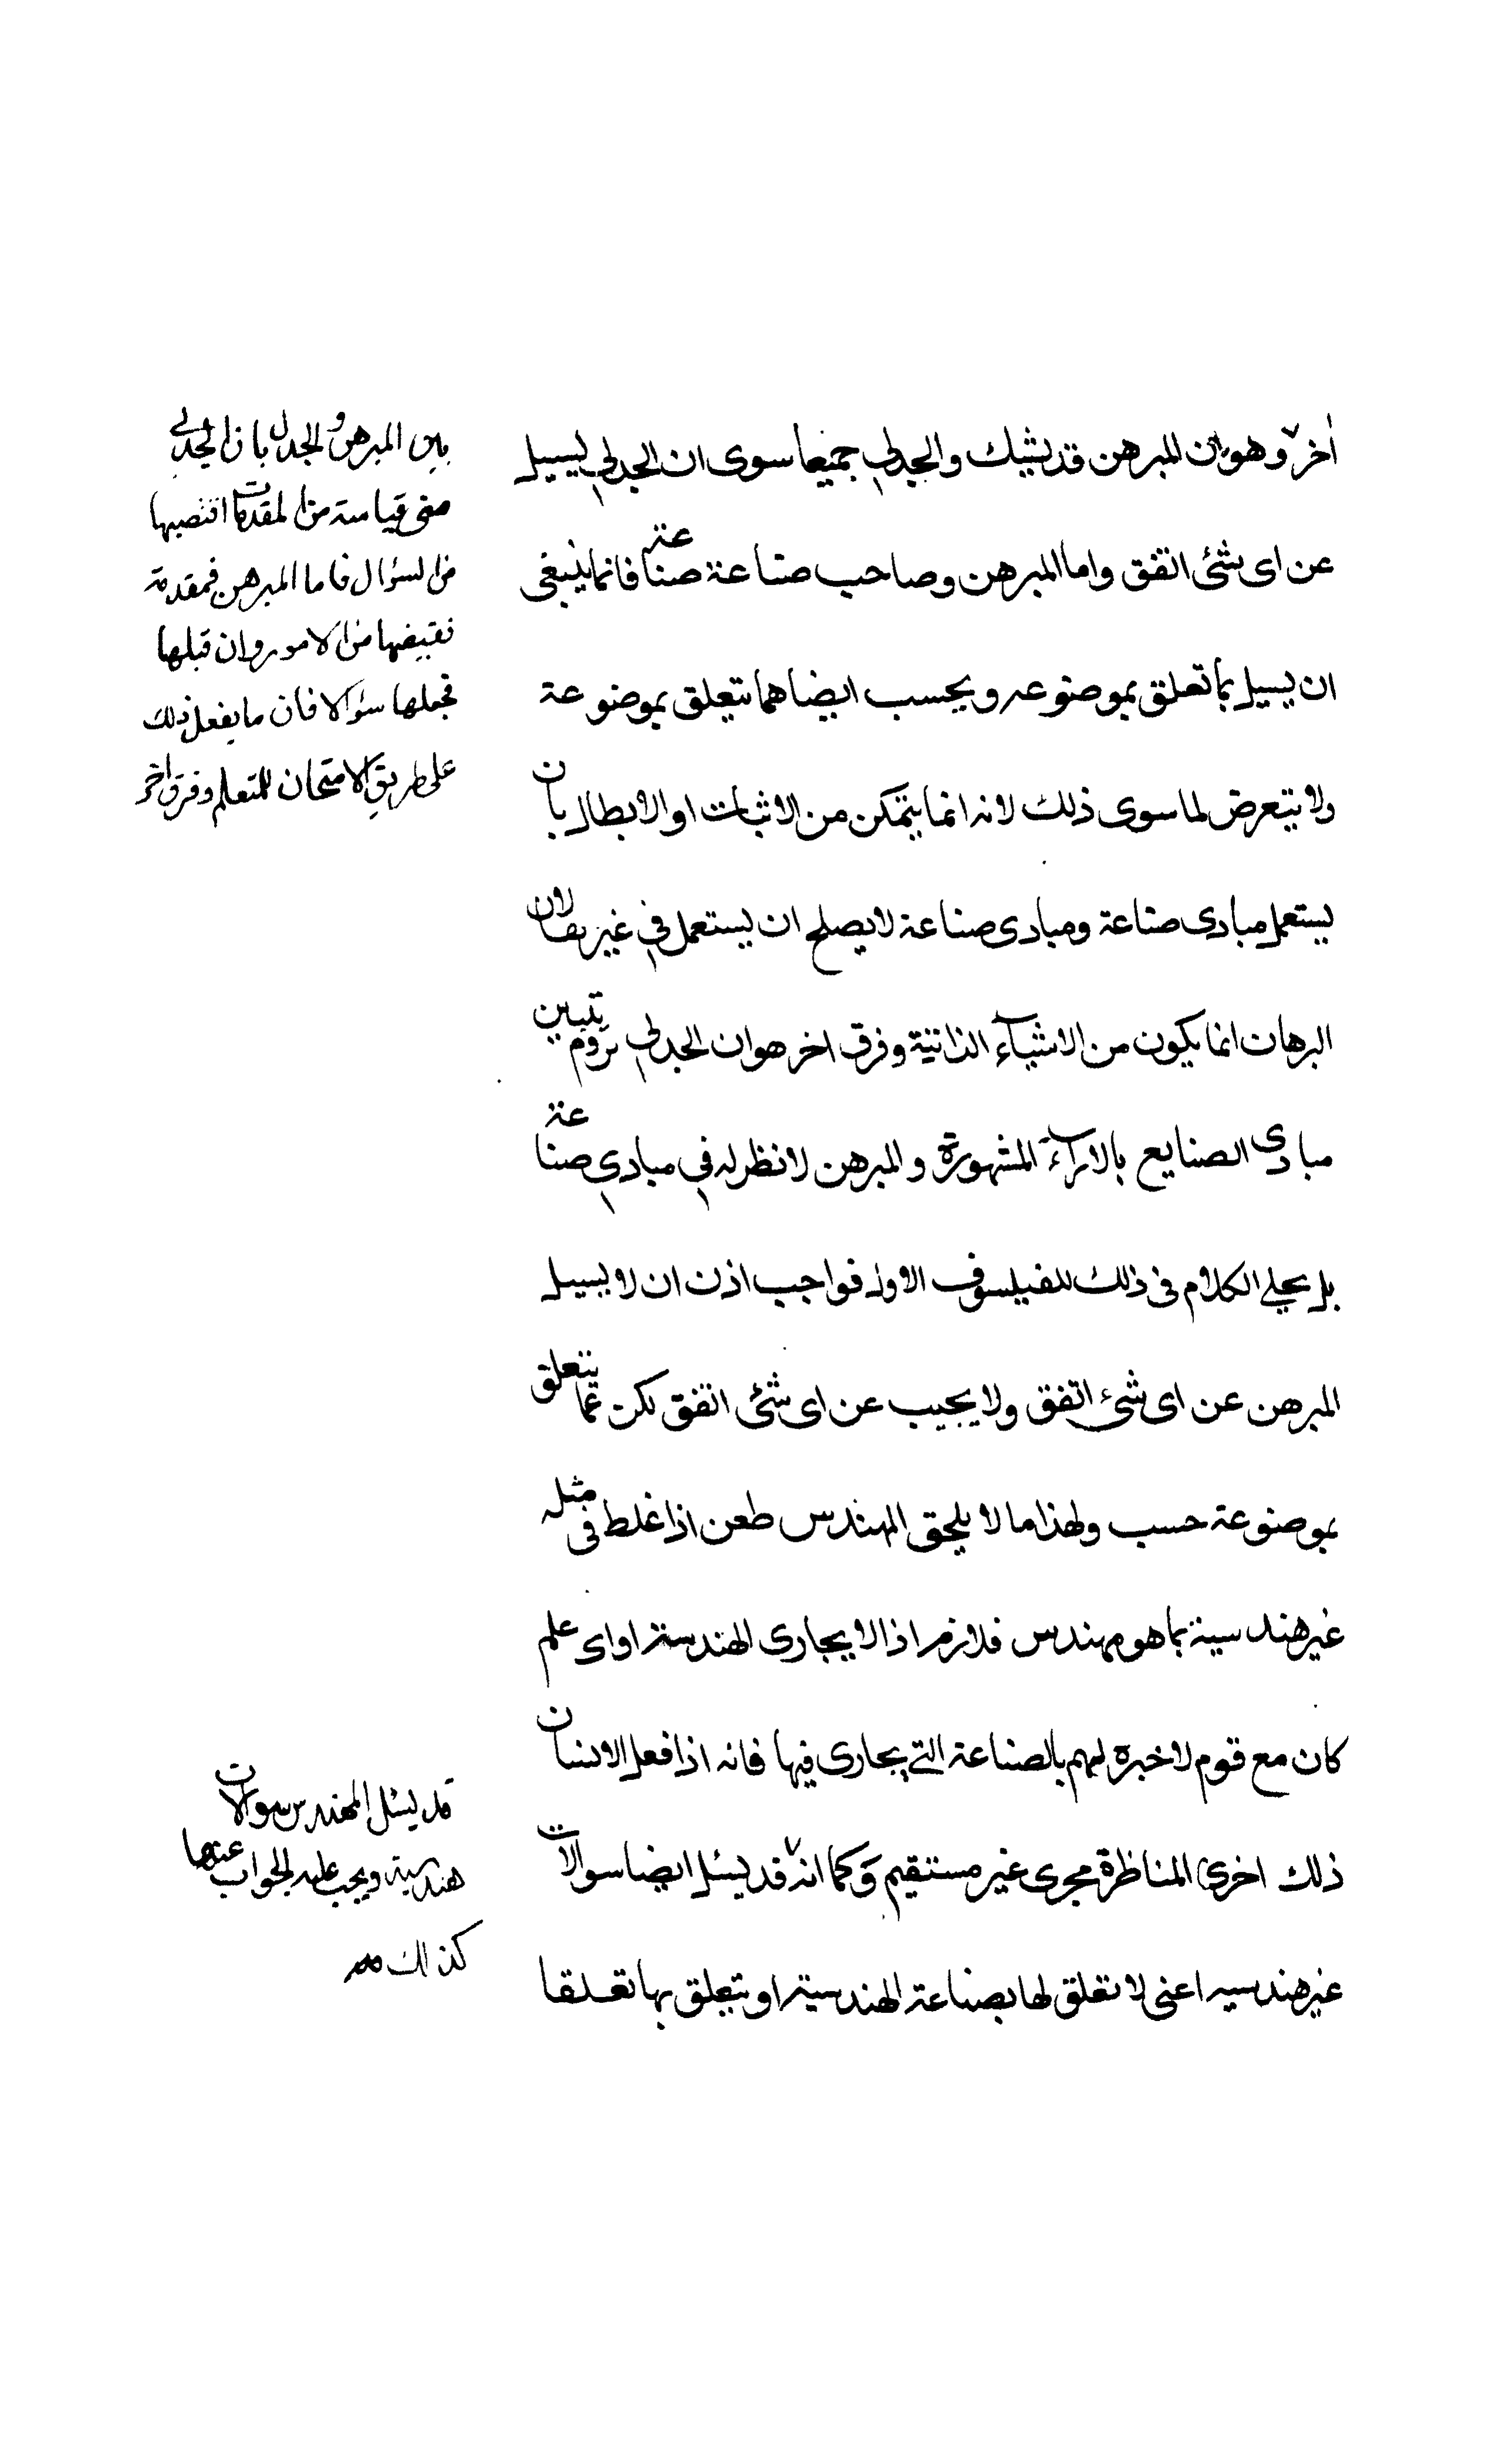 اخر وهو ان المبرهن قد يشيك والجدلي جميعا سوى ان الجدلي يسيل
عن اى شئ اتفق واما المبرهن وصاحب صناعة صناعة فانما ينبغى
ان يسيل بما تعلق بموضوعه ويحسب ايضا هما يتعلق بموضوعة
ولا يتعرض لما سوى ذلك لانه انما يتمكن من الاثبات او الابطال بان
يستعمل مبادى صناعة ومبادى صناعة لا يصلح ان يستعمل في غيرها لان
البرهان انما يكون من الاشياء الذاتية وفرق اخر هو ان الجدلي تروم تبيين
مبادى الصنايع بالاراء المشهورة والمبرهن لا نظر له في مبادي صناعة
بل يحلي الكلام فى ذلك للفيلسوف الاول فواجب اذن ان لا يسيل
المبرهن عن اى شئ اتفق ولا يجيب عن اى شئ اتفق لكن عما يتعلق
بموضوعة حسب ولهذا ما لا يلحق المهندس طعن اذا غلط فى مثله
غير هندسية بما هو مهندس فلازم اذا لا يجارى الهندسة او اى علم
كان مع قوم لا خبره لهم بالصناعة التي يجارى فيها فانه اذا فعل الانسان
ذلك اخرى المناظرة مجرى غير مستقيم وكما انه قد يسئل ايضا سوالات
غير هندسيه اعنى لا تعلق لها بصناعة الهندسية او يتعلق بها تعلقا
بين المبرهن والجدل بان الجدلي
من المقدمات اقتضبها
من السؤال فاما المبرهن فمقدمة
نقيضها من الامور وان قبلها
فجعلها سؤالا فان ما يفعل ذلك
على طريق الامتحان للمتعلم وفرق اخر
قد يسئل المهندس سوالات
هندسية ويجب عليه الجواب عنها
كذلك